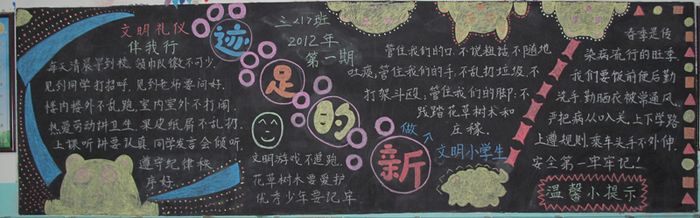 文明礼仪
伴我行
每天清晨早到校,领巾队徽不可少.
见到同学打招呼,见到老师要问好.
楼内楼外不乱跑,室内室外不打闹.
热爱劳动讲卫生,果皮纸屑不乱扔.
上课听讲要认真,同学发言会倾听.
遵守纪律秩
序好
三〈1〉班
2012年
第一期
新的足迹
文明游戏不追跑,
花草树木要爱护
优秀少年要记牢
管住我们的口,不说粗话,不随地
吐痰;管住我们的手,不乱扔垃圾,不
打架斗殴;管住我们的脚:不
践踏花草树木和
丘稼.
做
文明小学生
春季是传
染病流行的旺季
我们要饭前便后勤
洗手,勤晒衣被常通风.
严把病从口入关,上下学路
上遵规则,乘车关手不外伸
安全第一牢牢记!
温馨小提示